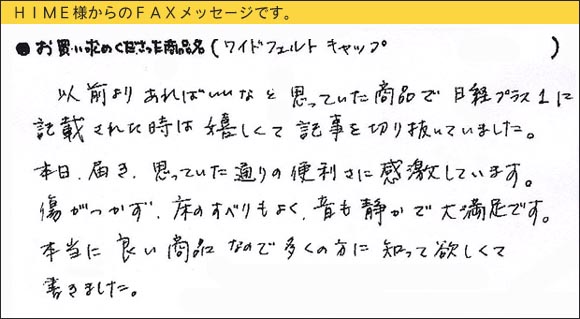 HIME様からのFAXメッセージです。
●お買い求めくださった商品名(ワイドフェルトキャップ )
以前よりあればいいなと思っていた商品で日経プラス1に
記載された時は嬉しくて記事を切り抜いていました。
本日、届き、思っていた通りの便利さに感激しています。
傷がつかず、床のすべりもよく、音も静かで大満足です。
本当に良い商品なので多くの方に知って欲しくて
書きました。